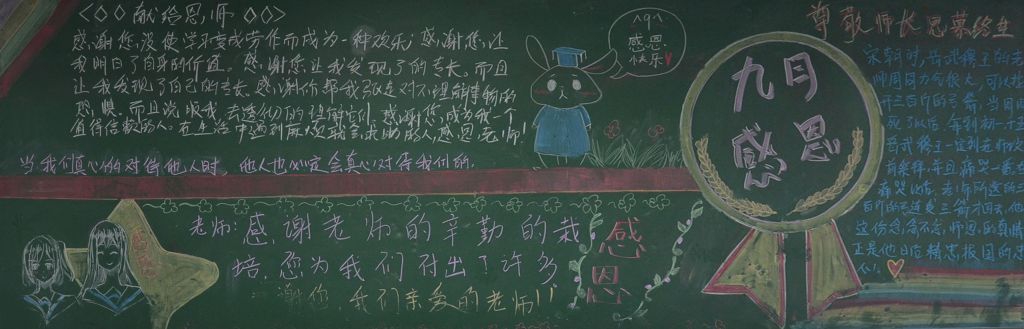 献给恩师
感谢您,没使学习变成劳作而成为一种欢乐;感谢您,让
我明白了自身的价值;感谢您,让我发现了自己的专长,而且
让我发现了自己的专长。感谢你帮我
恐惧。而且说服我去透彻的理解它们。感谢您,成为我一个
值得信赖的人。在生活中遇到麻烦可求助的人。感恩老师!
当我们真心的对待他人时,他人也必定会真心对待我们的.
老师:感谢老师的辛勤的栽
培,您为我们付出了许多
谢你,我们亲爱的老师!!
感
恩
^q^
感恩
快乐
九月
感恩
尊敬师长 恩慕终生
宋朝时,岳武穆王的老
师周同力气很大,可以拉
开三百斤的弓箭,当周同
死了以后,每到初一十五
岳武穆王一定到老师坟
前祭拜,并且痛哭一番,在
痛哭以后,老师所送的三
百斤的弓发三箭才回去,他
这份念
正是他日后精忠报国的忠
心!